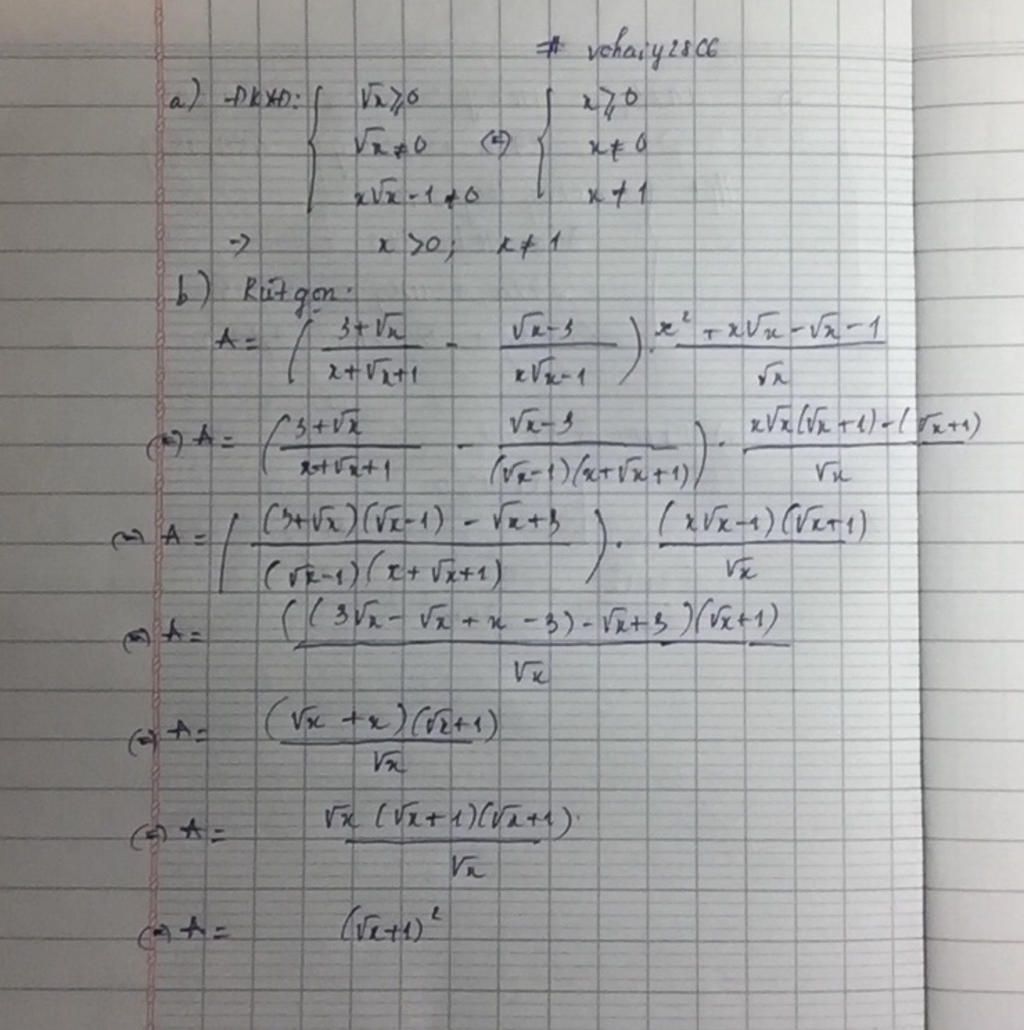 # vchaiy2806
a) ĐKXĐ: { √x ⩾ 0 (=) { x ⩾ 0
√x ≠ 0 x ≠ 0
x√x - 1 ≠ 0 x ≠ 1
-> x > 0; x ≠ 1
b) Rút gọn.
A = ( (3+√x)/(x+√x+1) - (√x-3)/(x√x-1) ) . (x² + x√x - √x - 1)/√x
(=) A = ( (3+√x)/(x+√x+1) - (√x-3)/((√x-1)(x+√x+1)) ) . (x√x(√x+1) - (√x+1))/√x
(=) A = ( ((3+√x)(√x-1) - √x+3)/((√x-1)(x+√x+1)) ) . ((x√x-1)(√x+1))/√x
(=) A = ((3√x - √x + x - 3) - √x+3)(√x+1)/√x
(=) A = (√x + x)(√x+1)/√x
(=) A = √x (√x+1)(√x+1)/√x
(=) A = (√x+1)²